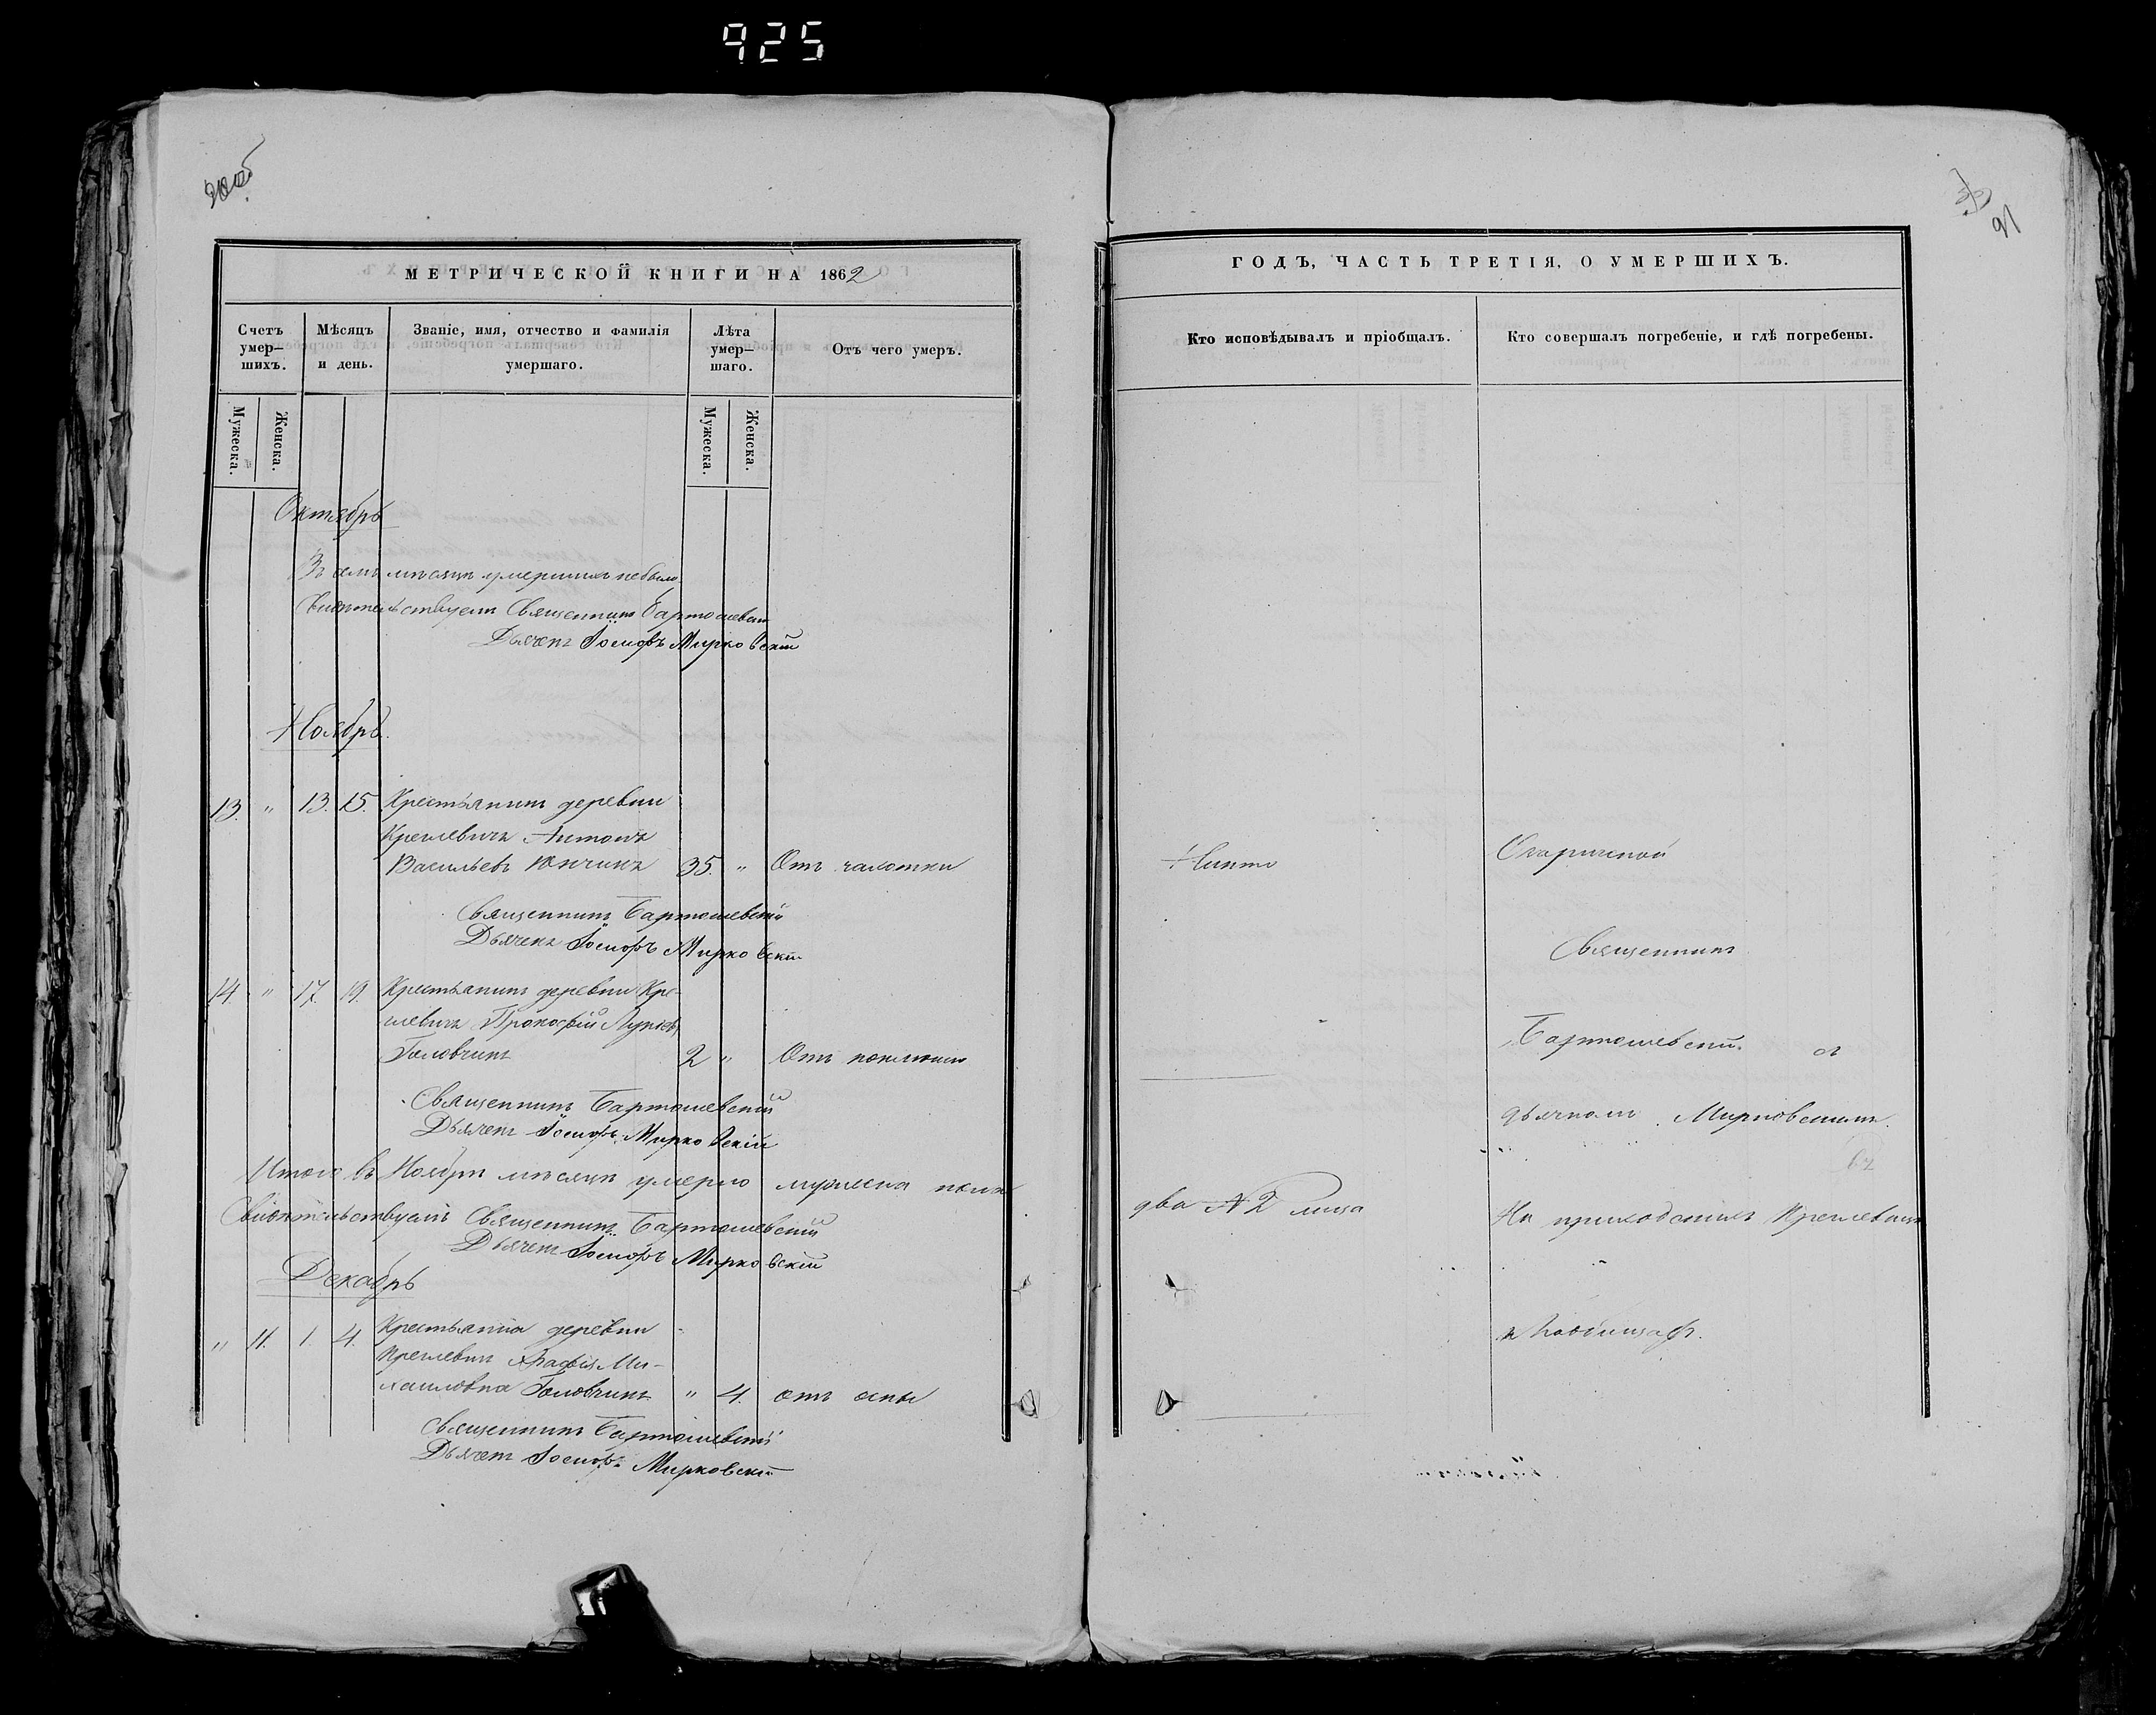 925
90об
91
МЕТРИЧЕСКОЙ КНИГИ НА 1862
ГОДЪ, ЧАСТЬ ТРЕТІЯ, О УМЕРШИХЪ.
Счетъ умер—шихъ.
Мѣсяцъ и день.
Званіе, имя, отчество и фамилія умершаго.
Лѣта умер—шаго.
Отъ чего умеръ.
Кто исповѣдывалъ и пріобщалъ.
Кто совершалъ погребеніе, и гдѣ погребены.
Мужеска.
Женска.
Мужеска.
Женска.
Октябрь
Въ семъ мѣсяцѣ умершихъ небыло.
Свидѣтельствуемъ Священникъ Бартошевскій
Дьячекъ Іосифъ Мирковскій
Ноябрь.
13. " 13. 15. Крестьянинъ деревни
Крешевичъ Антонъ
Васильевъ Юнчикъ 35. " Отъ чахотки
Никто
Священникъ Бартошевскій
Дьячекъ Іосифъ Мирковскій
14. " 17. 19. Крестьянинъ деревни Кре-
шевичъ Прокофій
Головчикъ 2 " Отъ коклюша
Священникъ Бартошевскій
Дьячекъ Іосифъ Мирковскій
Итого въ Ноябрѣ мѣсяцѣ умерло мужеска пола
два № 2 лица
Свидѣтельствуемъ Священникъ Бартошевскій
Дьячекъ Іосифъ Мирковскій
Декабрь
" 11. 1. 4. Крестьянка деревни
Крешевичъ Ми-
хаиловна Головчикъ " 4. отъ оспы
Священникъ Бартошевскій
Дьячекъ Іосифъ Мирковскій
Священникъ
Бартошевскій съ
дьячкомъ Мирковскимъ.
На приходскихъ